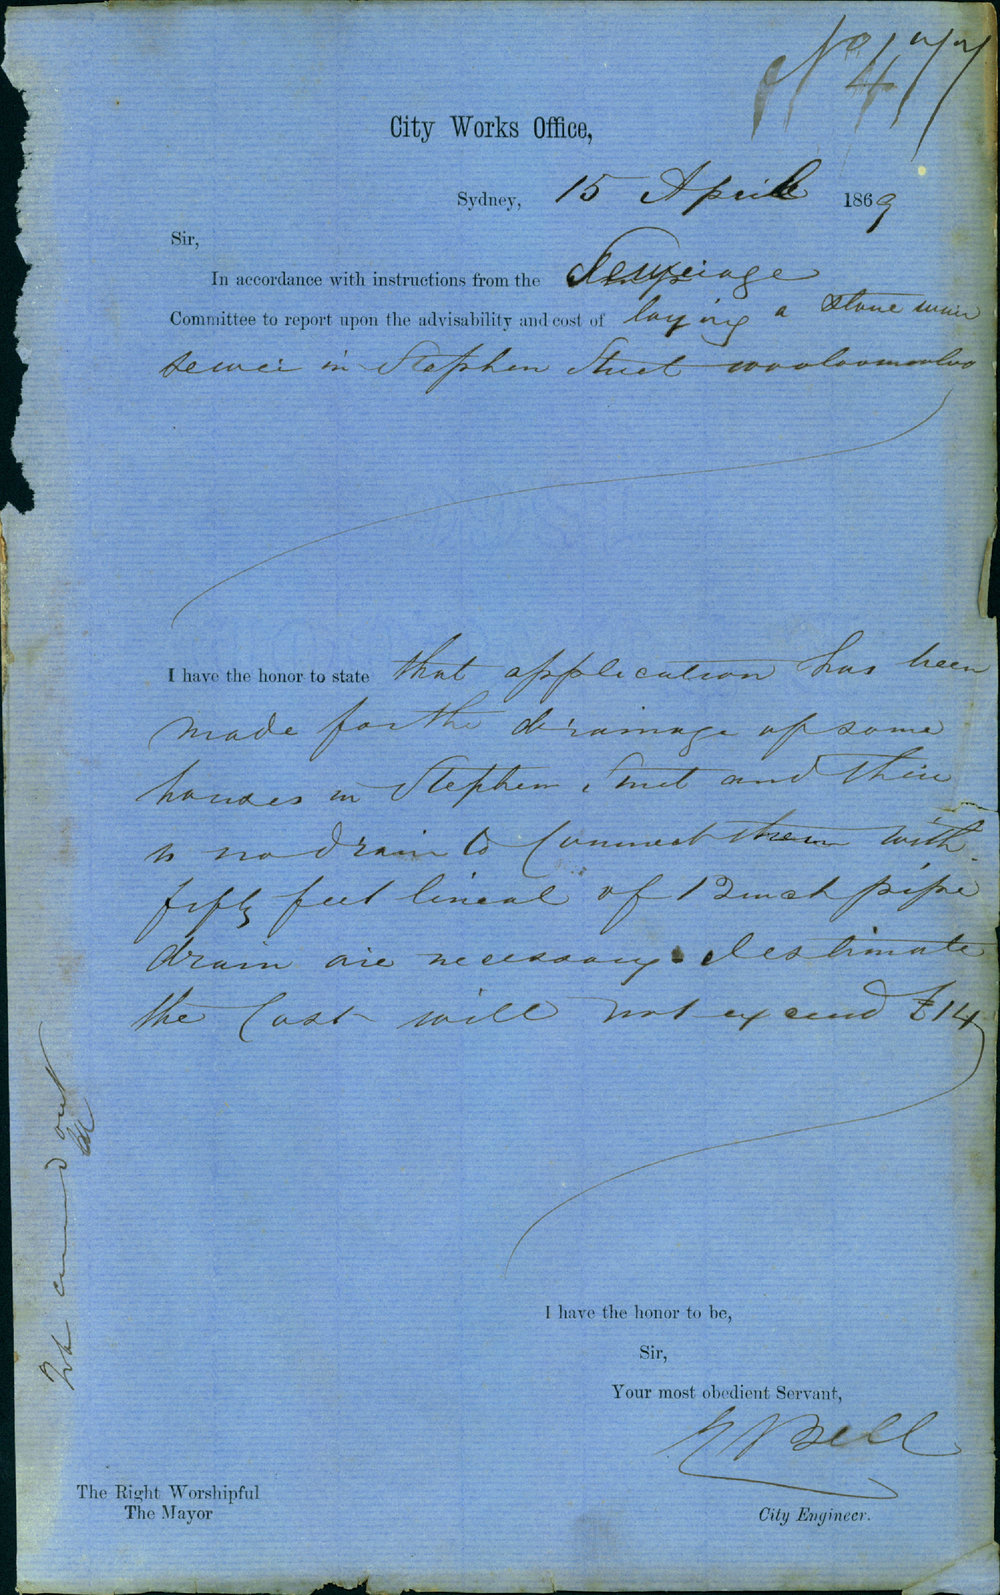 No 477
City Works Office,
Sydney, 15 April 1869
Sir,
In accordance with instructions from the Sewerage
Committee to report upon the advisability and cost of laying a stone ware
sewer in Stephen Street Wooloomooloo
I have the honor to state that application has been
made for the drainage of some
houses in Stephen Street and there
is no drain to connect them with
fifty feet lineal of 12 inch pipe
drain are necessary. I estimate
the cost will not exceed £14
Not carried out
I have the honor to be,
Sir,
Your most obedient Servant,
Bell
The Right Worshipful
The Mayor
City Engineer.